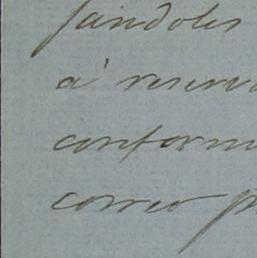 jandoles
á reserv
conform
correo p